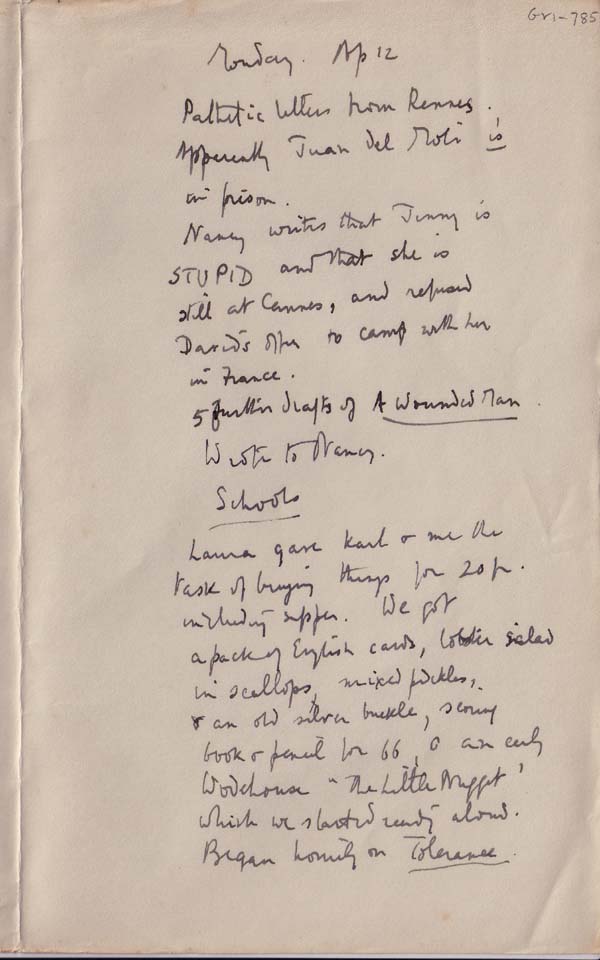 GVI-785
Monday. Ap 12
Pathetic letters from Rennes.
Apparently Juan del Moli is
in prison.
Nancy writes that Jenny is
STUPID and that she is
still at Cannes, and refused
David's offer to camp with her
in France.
5 further drafts of A Wounded Man.
Wrote to Nancy.
Schools
Laura gave Karl & me the
task of buying things for 20 fr.
including supper. We got
a pack of English cards, lobster salad
in scallops, mixed pickles,
& an old silver buckle, scoring
book & pencil for 66, & an early
Wodehouse "The Little Nugget'
which we started reading aloud.
Began homily on Tolerance.